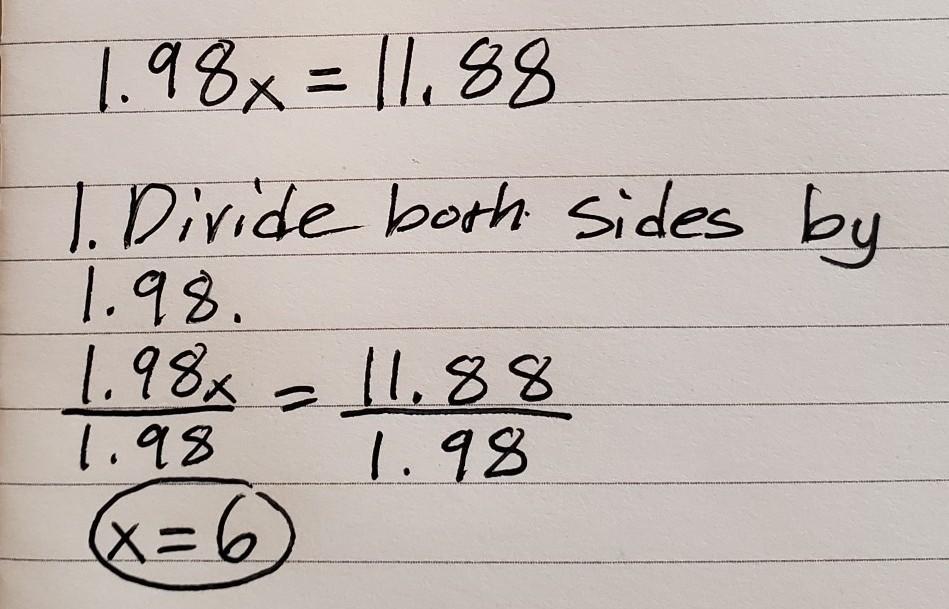 1.98x = 11.88
1. Divide both sides by
1.98.
1.98x = 11.88
1.98 1.98
x = 6